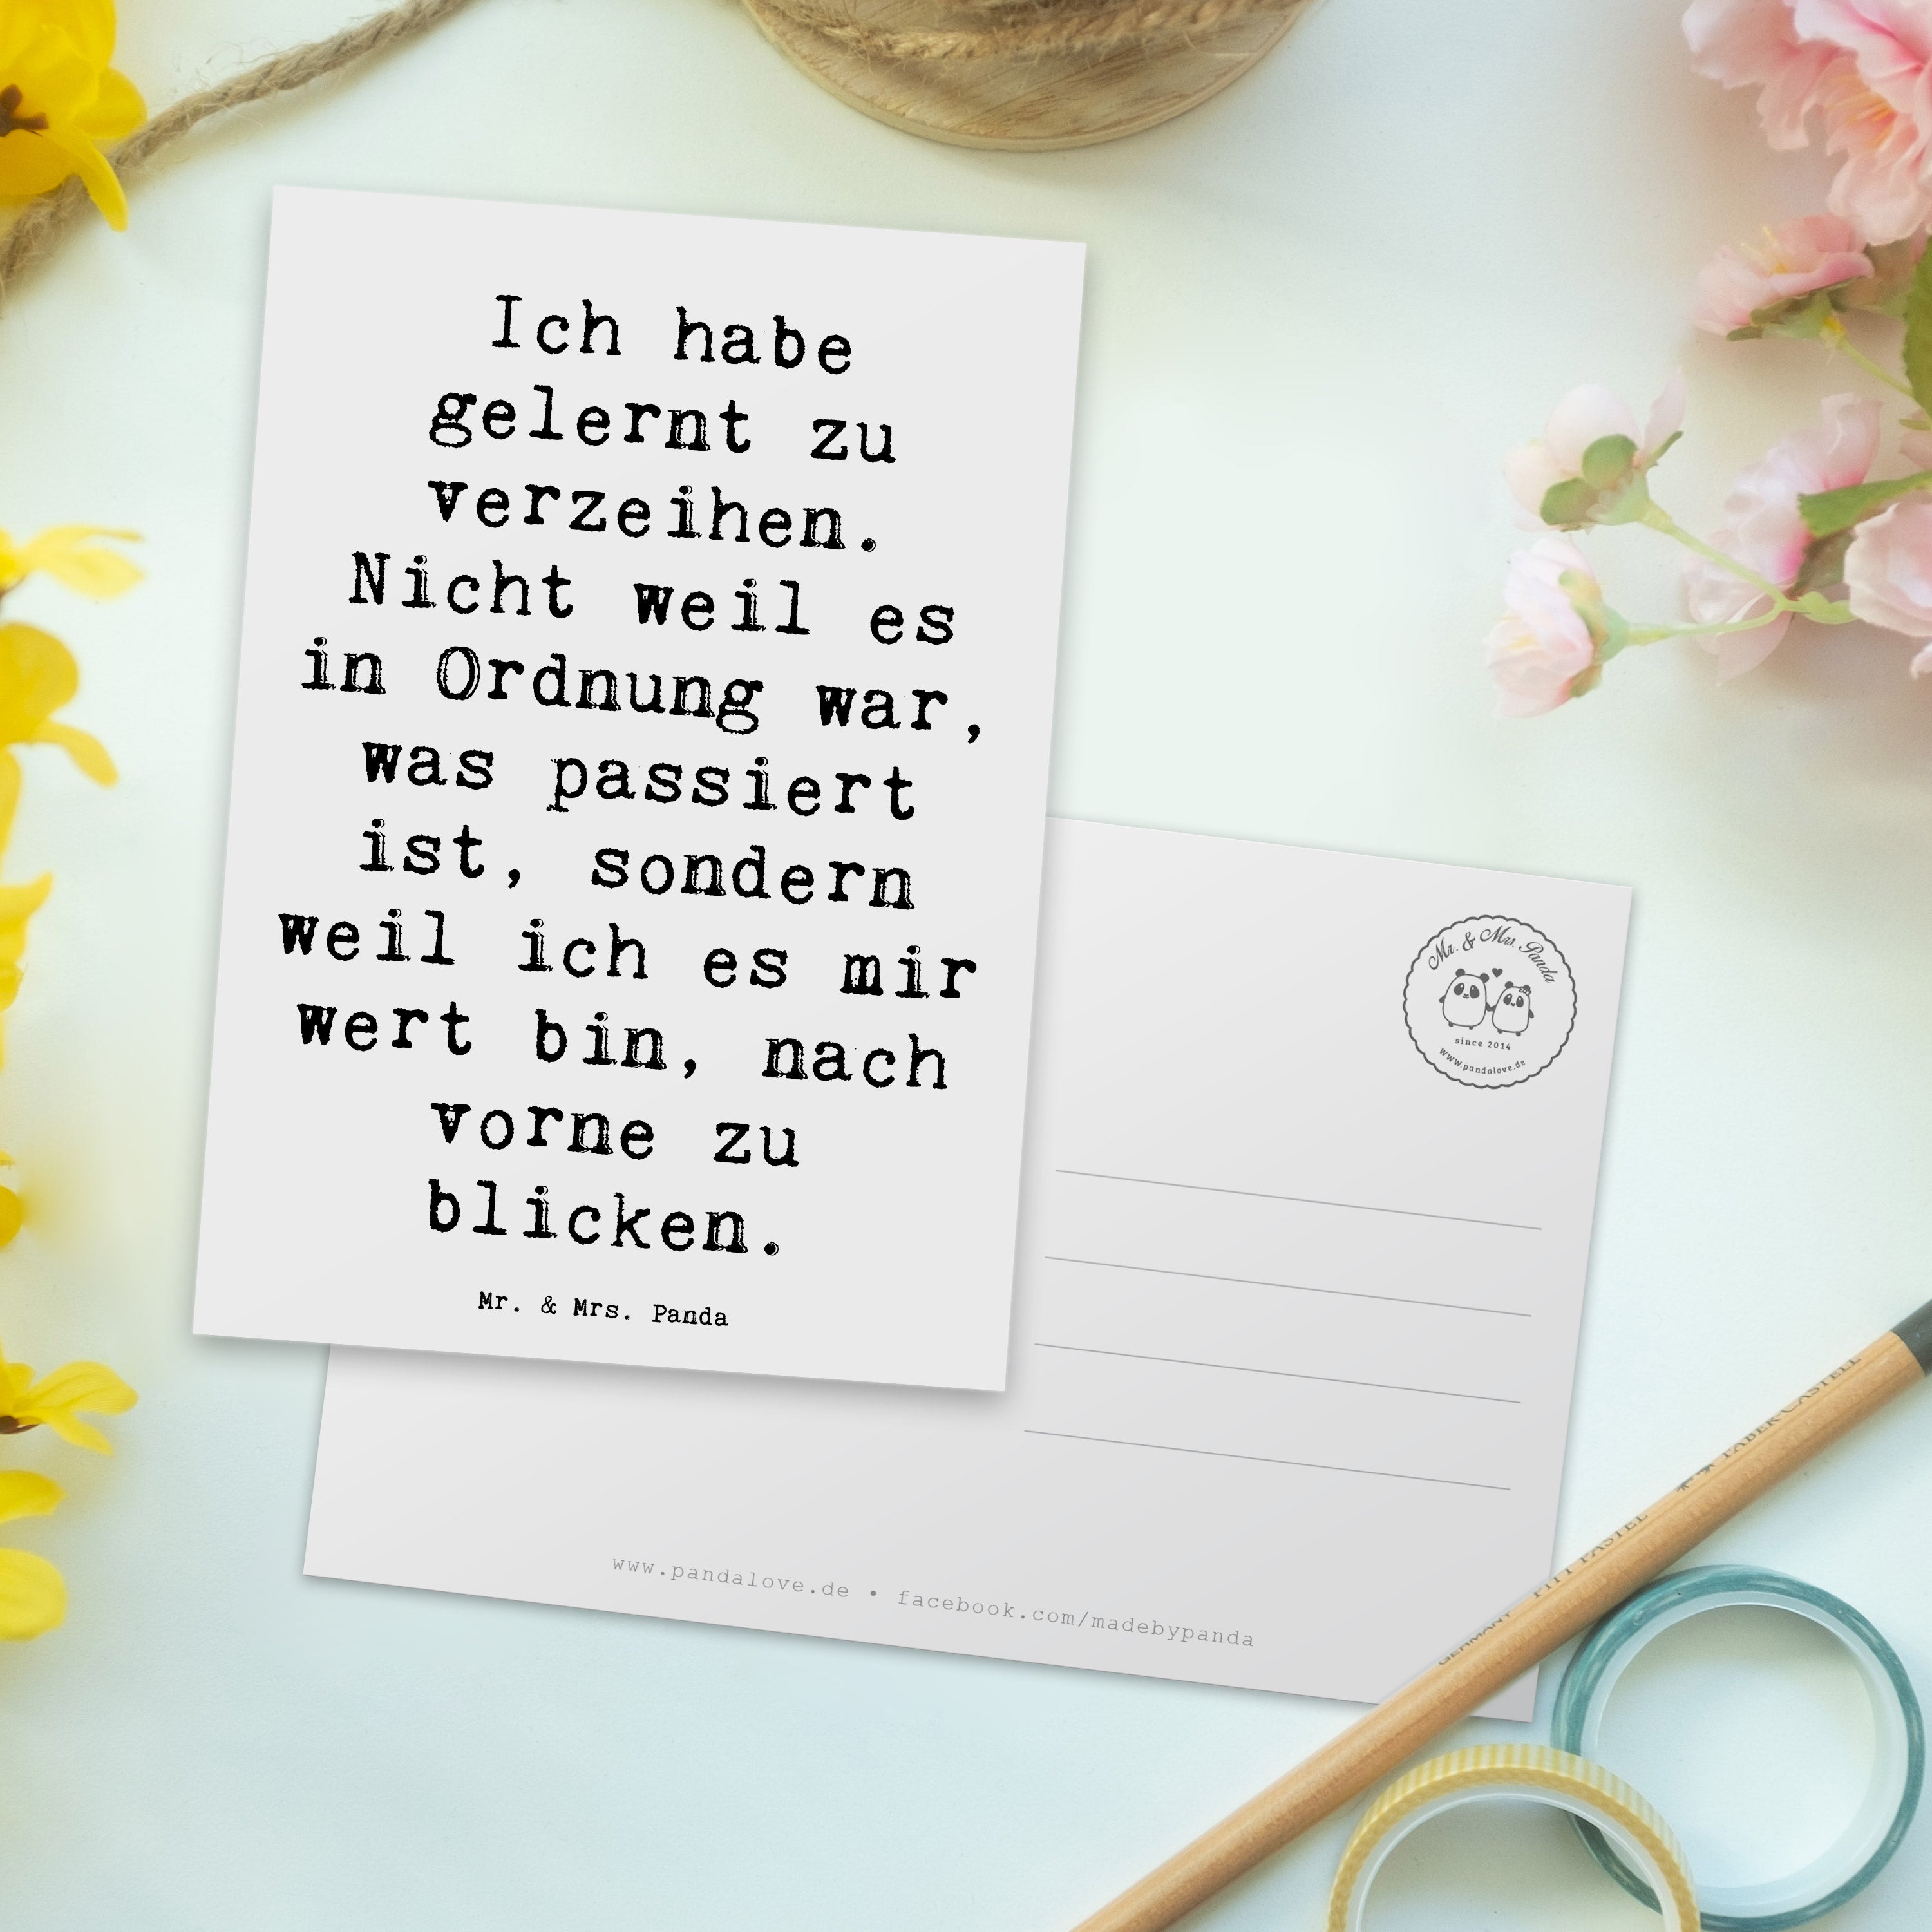 Ich habe
gelernt zu
verzeihen.
Nicht weil es
in Ordnung war,
was passiert
ist, sondern
weil ich es mir
wert bin, nach
vorne zu
blicken.
Mr. & Mrs. Panda
Mr. & Mrs. Panda
since 2014
www.pandalove.de
www.pandalove.de • facebook.com/madebypanda
GERMANY PITT PASTEL FABER-CASTELL